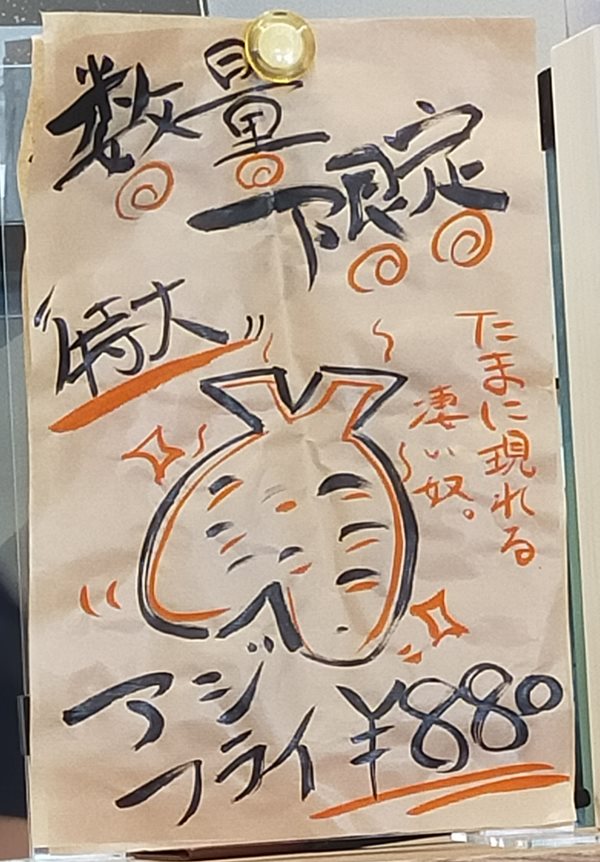 数量
限定
"特大"
たまに現れる
凄い奴。
アジ
フライ ¥880